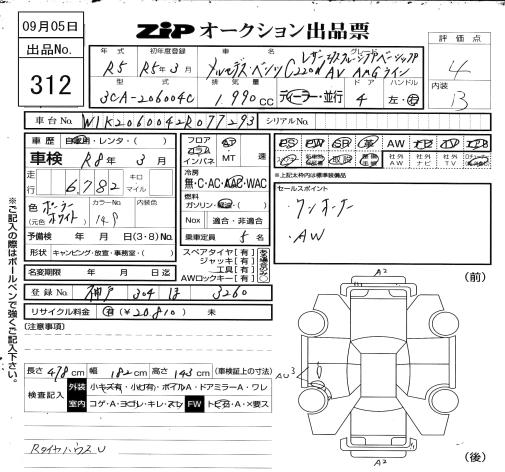 09月05日
ZiP オークション出品票
出品No.
312
評価点
4
内装
B
年式 初年度登録 車名 グレード
R5 R5年3月 メルセデス・ベンツ C220d AV AMGライン
型式 排気量 ドア ハンドル
3CA-206004C 1,990cc ディーラー・並行 4 左・右
車台No. W1K2060042R077293 シリアルNo.
車歴 自家用・レンタ・( )
車検 R8年3月
走行 6,782 キロ マイル
色 ポーラーホワイト (元色) カラーNo. 149 内装色
予備検 年 月 日(3・8)No.
形状 キャンピング・放宣・事務室・( )
名変期限 年 月 日迄
登録No. 神戸 304 ほ 3260
リサイクル料金 有(¥20,810) 未
フロア コラム インパネ AT MT 速
冷房 無・C・AC・AAC・WAC
燃料 ガソリン・軽油・( )
Nox 適合・非適合
乗車定員 5名
スペアタイヤ[有]
ジャッキ[有]
工具[有]
AWロックキー[有]
AW ナビ TV
社外AW 社外ナビ 社外TV
*上記太枠内は標準装備品
セールスポイント
・ワンオーナー
・AW
(注意事項)
長さ 478cm 幅 182cm 高さ 143cm (車検証上の寸法)
検査記入 外装 小キズ有・小凹有・ボイルA・ドアミラーA・ワレ
室内 コゲ・A・ヨゴレ・キレ・スレ FW トビ石・A・×要ス
RタイヤハウスU
※ご記入の際はボールペンで強くご記入下さい。
(前)
A2
AU3
A2
(後)